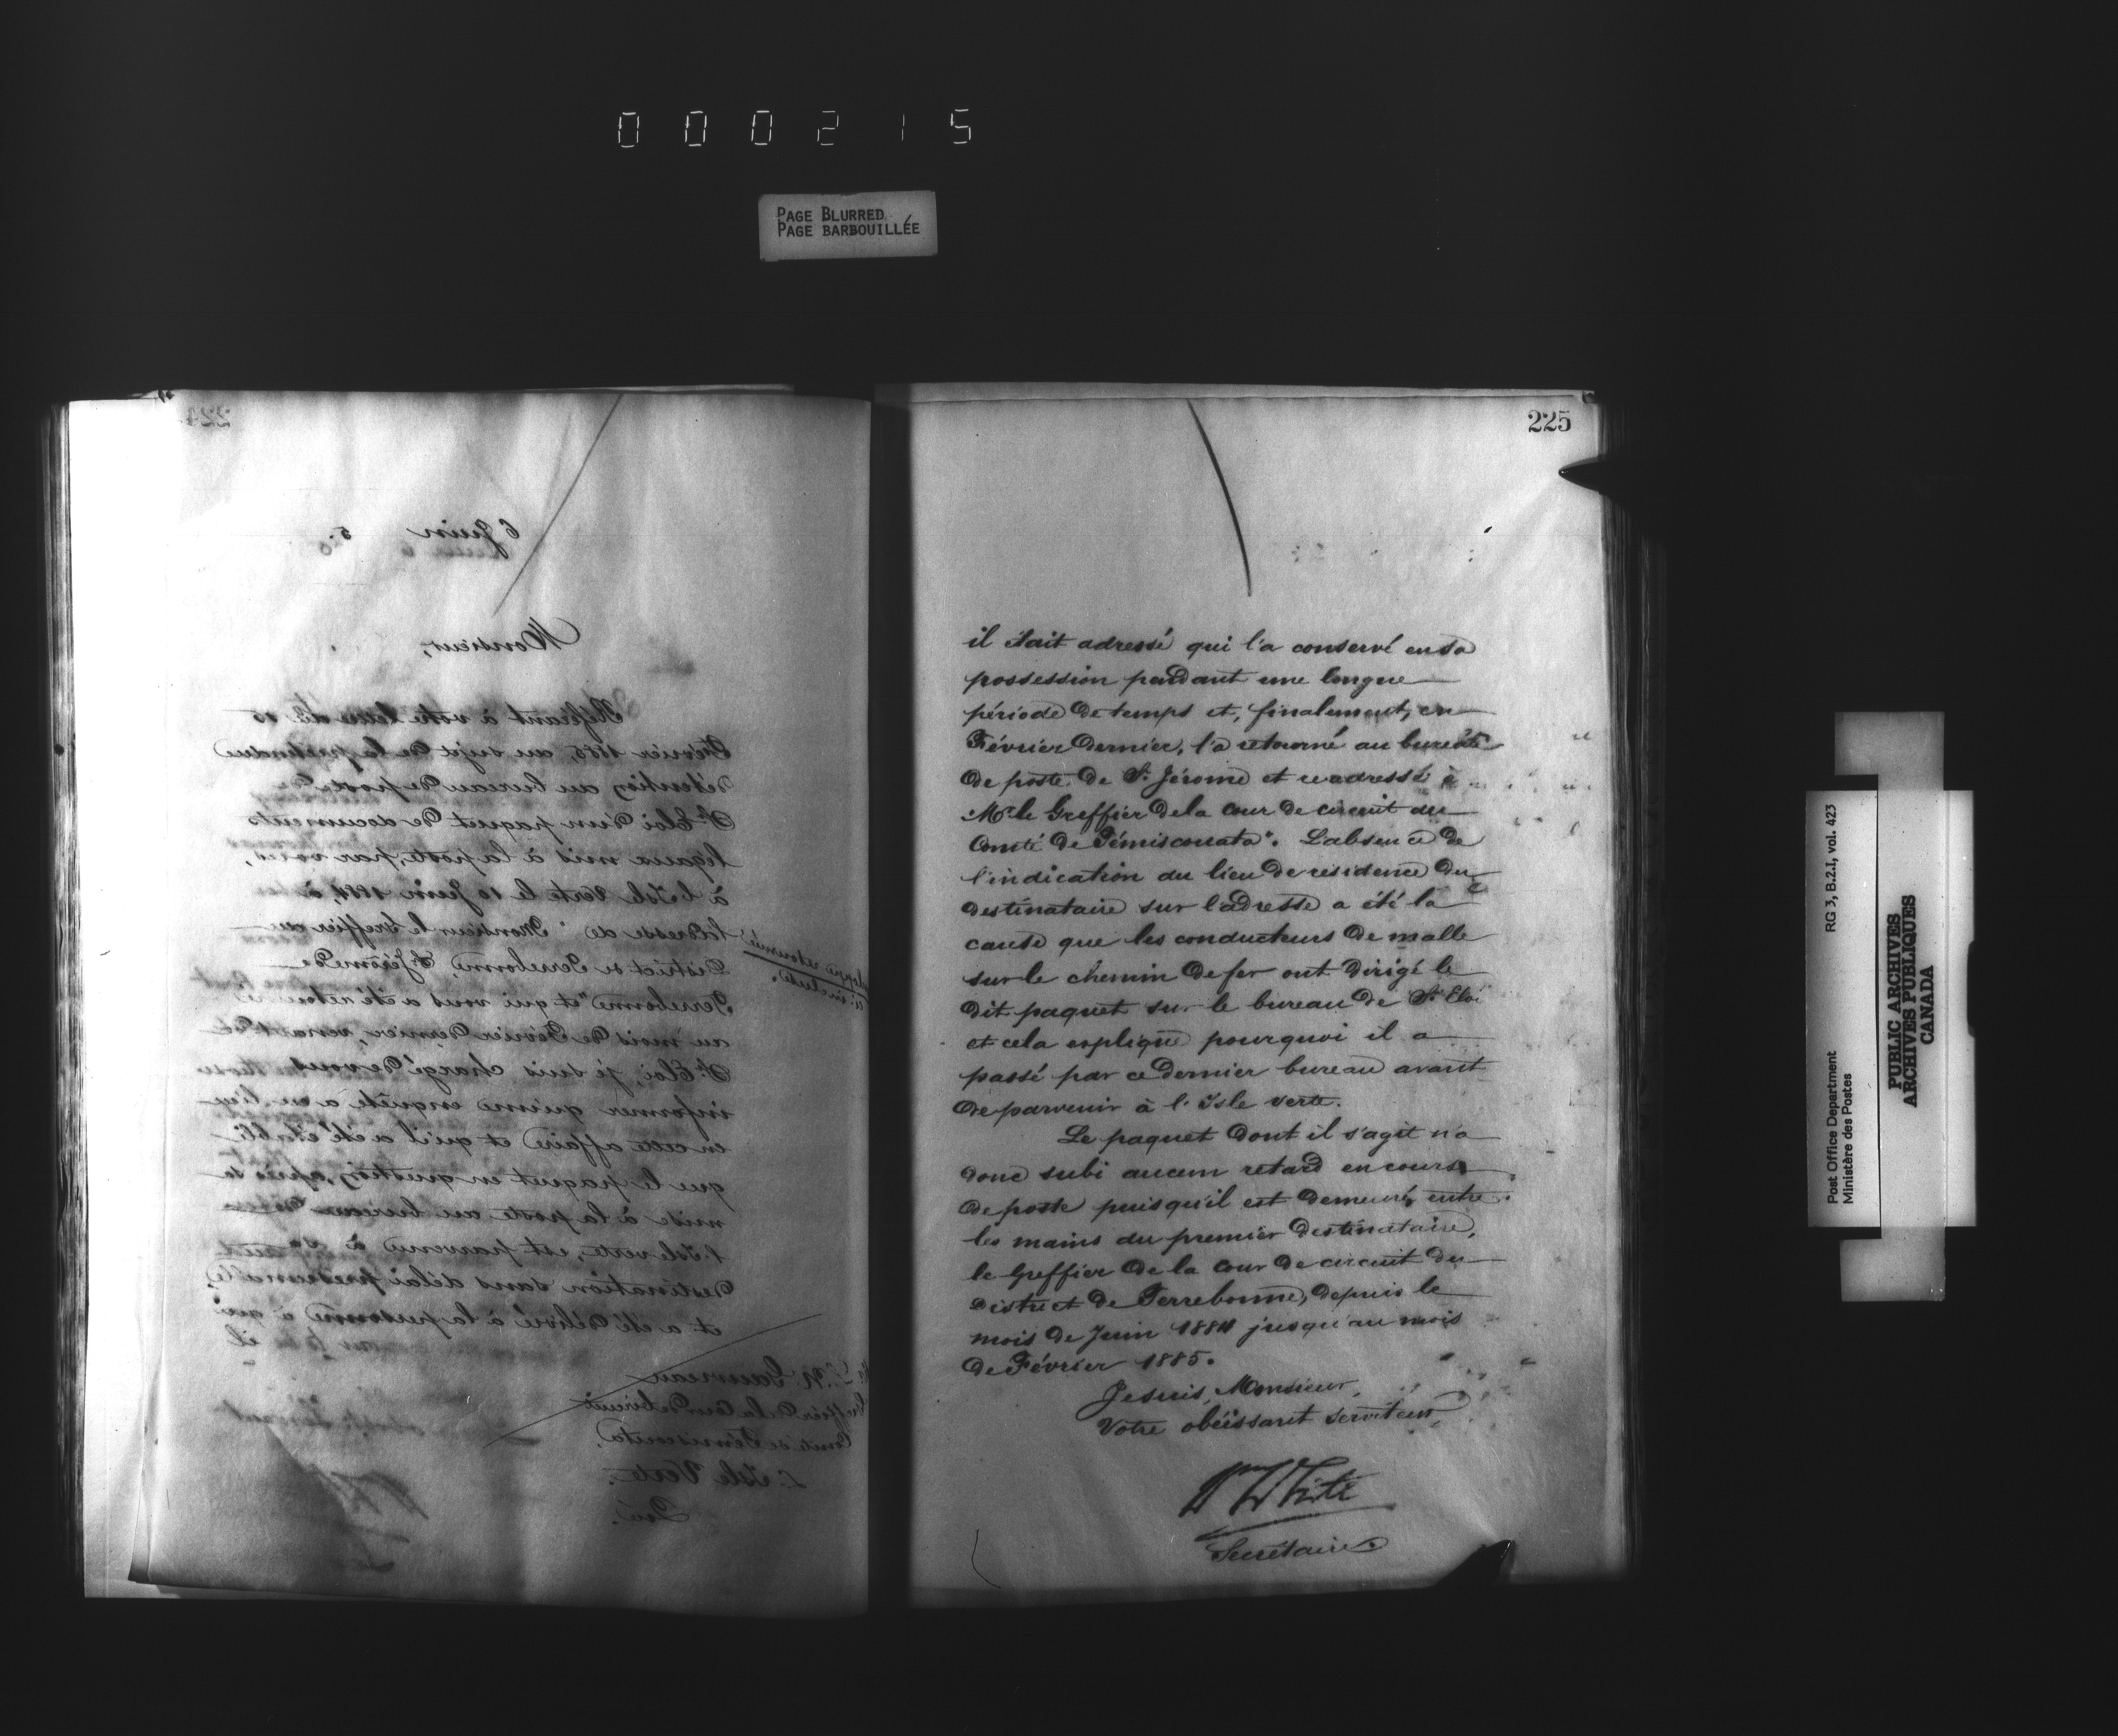 000215
PAGE BLURRED
PAGE BARBOUILLÉE
224
6 Juin 5.
Monsieur,
Référant à votre lettre du 25
Février 1885, au sujet de la prétendue
détention au bureau de poste de
St Eloi d'un paquet de documents
légaux mis à la poste, par vous,
à l'Isle Verte le 10 Juin 1884, à
l'adresse de "Monsieur le Greffier du
District de Terrebonne, St Jérôme de
Terrebonne" et qui vous a été retourné
au mois de Février dernier, venant de
St Eloi, je suis chargé de vous
informer qu'une enquête a eu lieu
en cette affaire et qu'il a été établi
que le paquet en question, après sa
mise à la poste au bureau de
l'Isle verte, est parvenu à sa
destination sans délai
et a été délivré à la personne à qui
il
retourné
ci-incluse.
Gauvreau
Greffier de la Cour de Circuit
Comté de Témiscouata,
L'Isle Verte.
Qué.
225
il était adressé qui l'a conservé en sa
possession pendant une longue
période de temps et, finalement, en
Février dernier, l'a retourné au bureau
de poste de St Jérome et readressé à
Mr. le Greffier de la cour de circuit du
Comté de Témiscouata". L'absence de
l'indication du lieu de residence du
destinataire sur l'adresse a été la
cause que les conducteurs de malle
sur le chemin de fer ont dirigé le
dit paquet sur le bureau de St Eloi
et cela explique pourquoi il a
passé par ce dernier bureau avant
de parvenir à l'Isle verte.
Le paquet dont il s'agit n'a
donc subi aucun retard en cours
de poste puisqu'il est demeuré, entre
les mains du premier destinataire,
le Greffier de la cour de circuit du
District de Terrebonne, depuis le
mois de Juin 1884 jusqu'au mois
de Février 1885.
Je suis, Monsieur,
Votre obéissant serviteur,
Wm White
Secrétaire
RG 3, B.2.I, vol. 423
Post Office Department
Ministère des Postes
PUBLIC ARCHIVES
ARCHIVES PUBLIQUES
CANADA